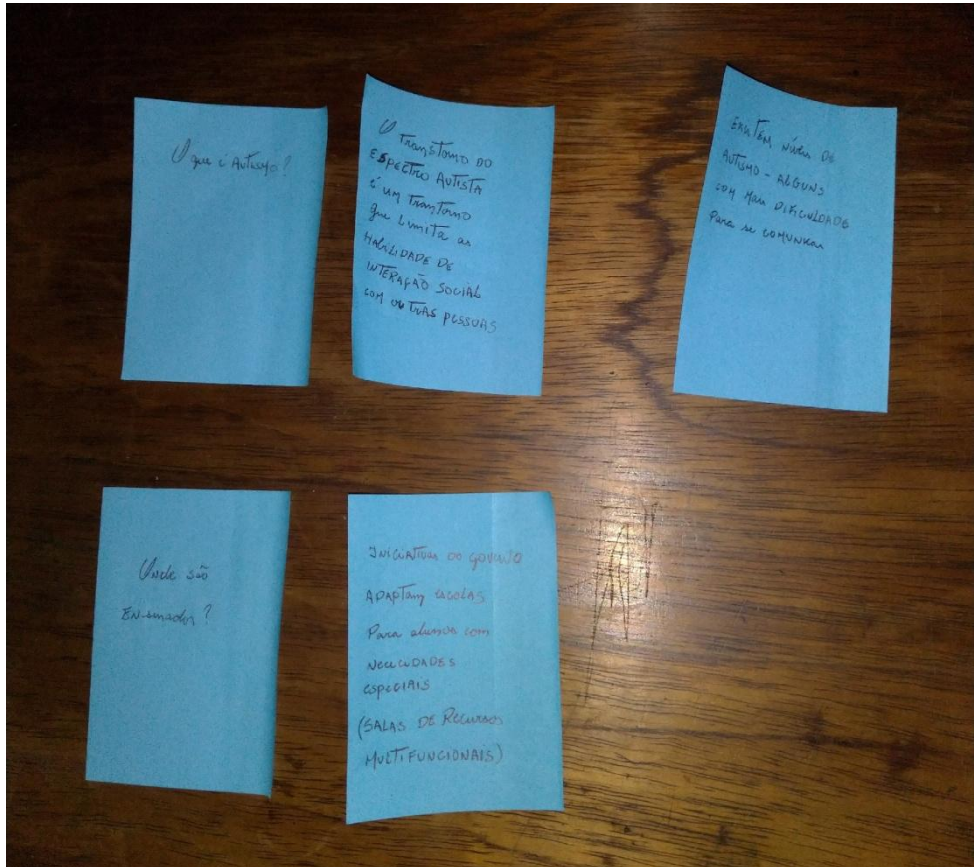 O que é Autismo?
O Transtorno do
ESPECTRO AUTISTA
é um Transtorno
que limita as
HABILIDADE DE
INTERAÇÃO SOCIAL
COM OUTRAS PESSOAS
EXISTEM Níveis DE
AUTISMO - ALGUNS
COM Mais DIFICULDADE
Para se COMUNICAR
Onde são
ENsinados?
INICIATIVAS DO GOVERNO
ADAPTAM ESCOLAS
Para alunos com
NECECIDADES
ESPECIAIS
(SALAS DE Recursos
MULTIFUNCIONAIS)